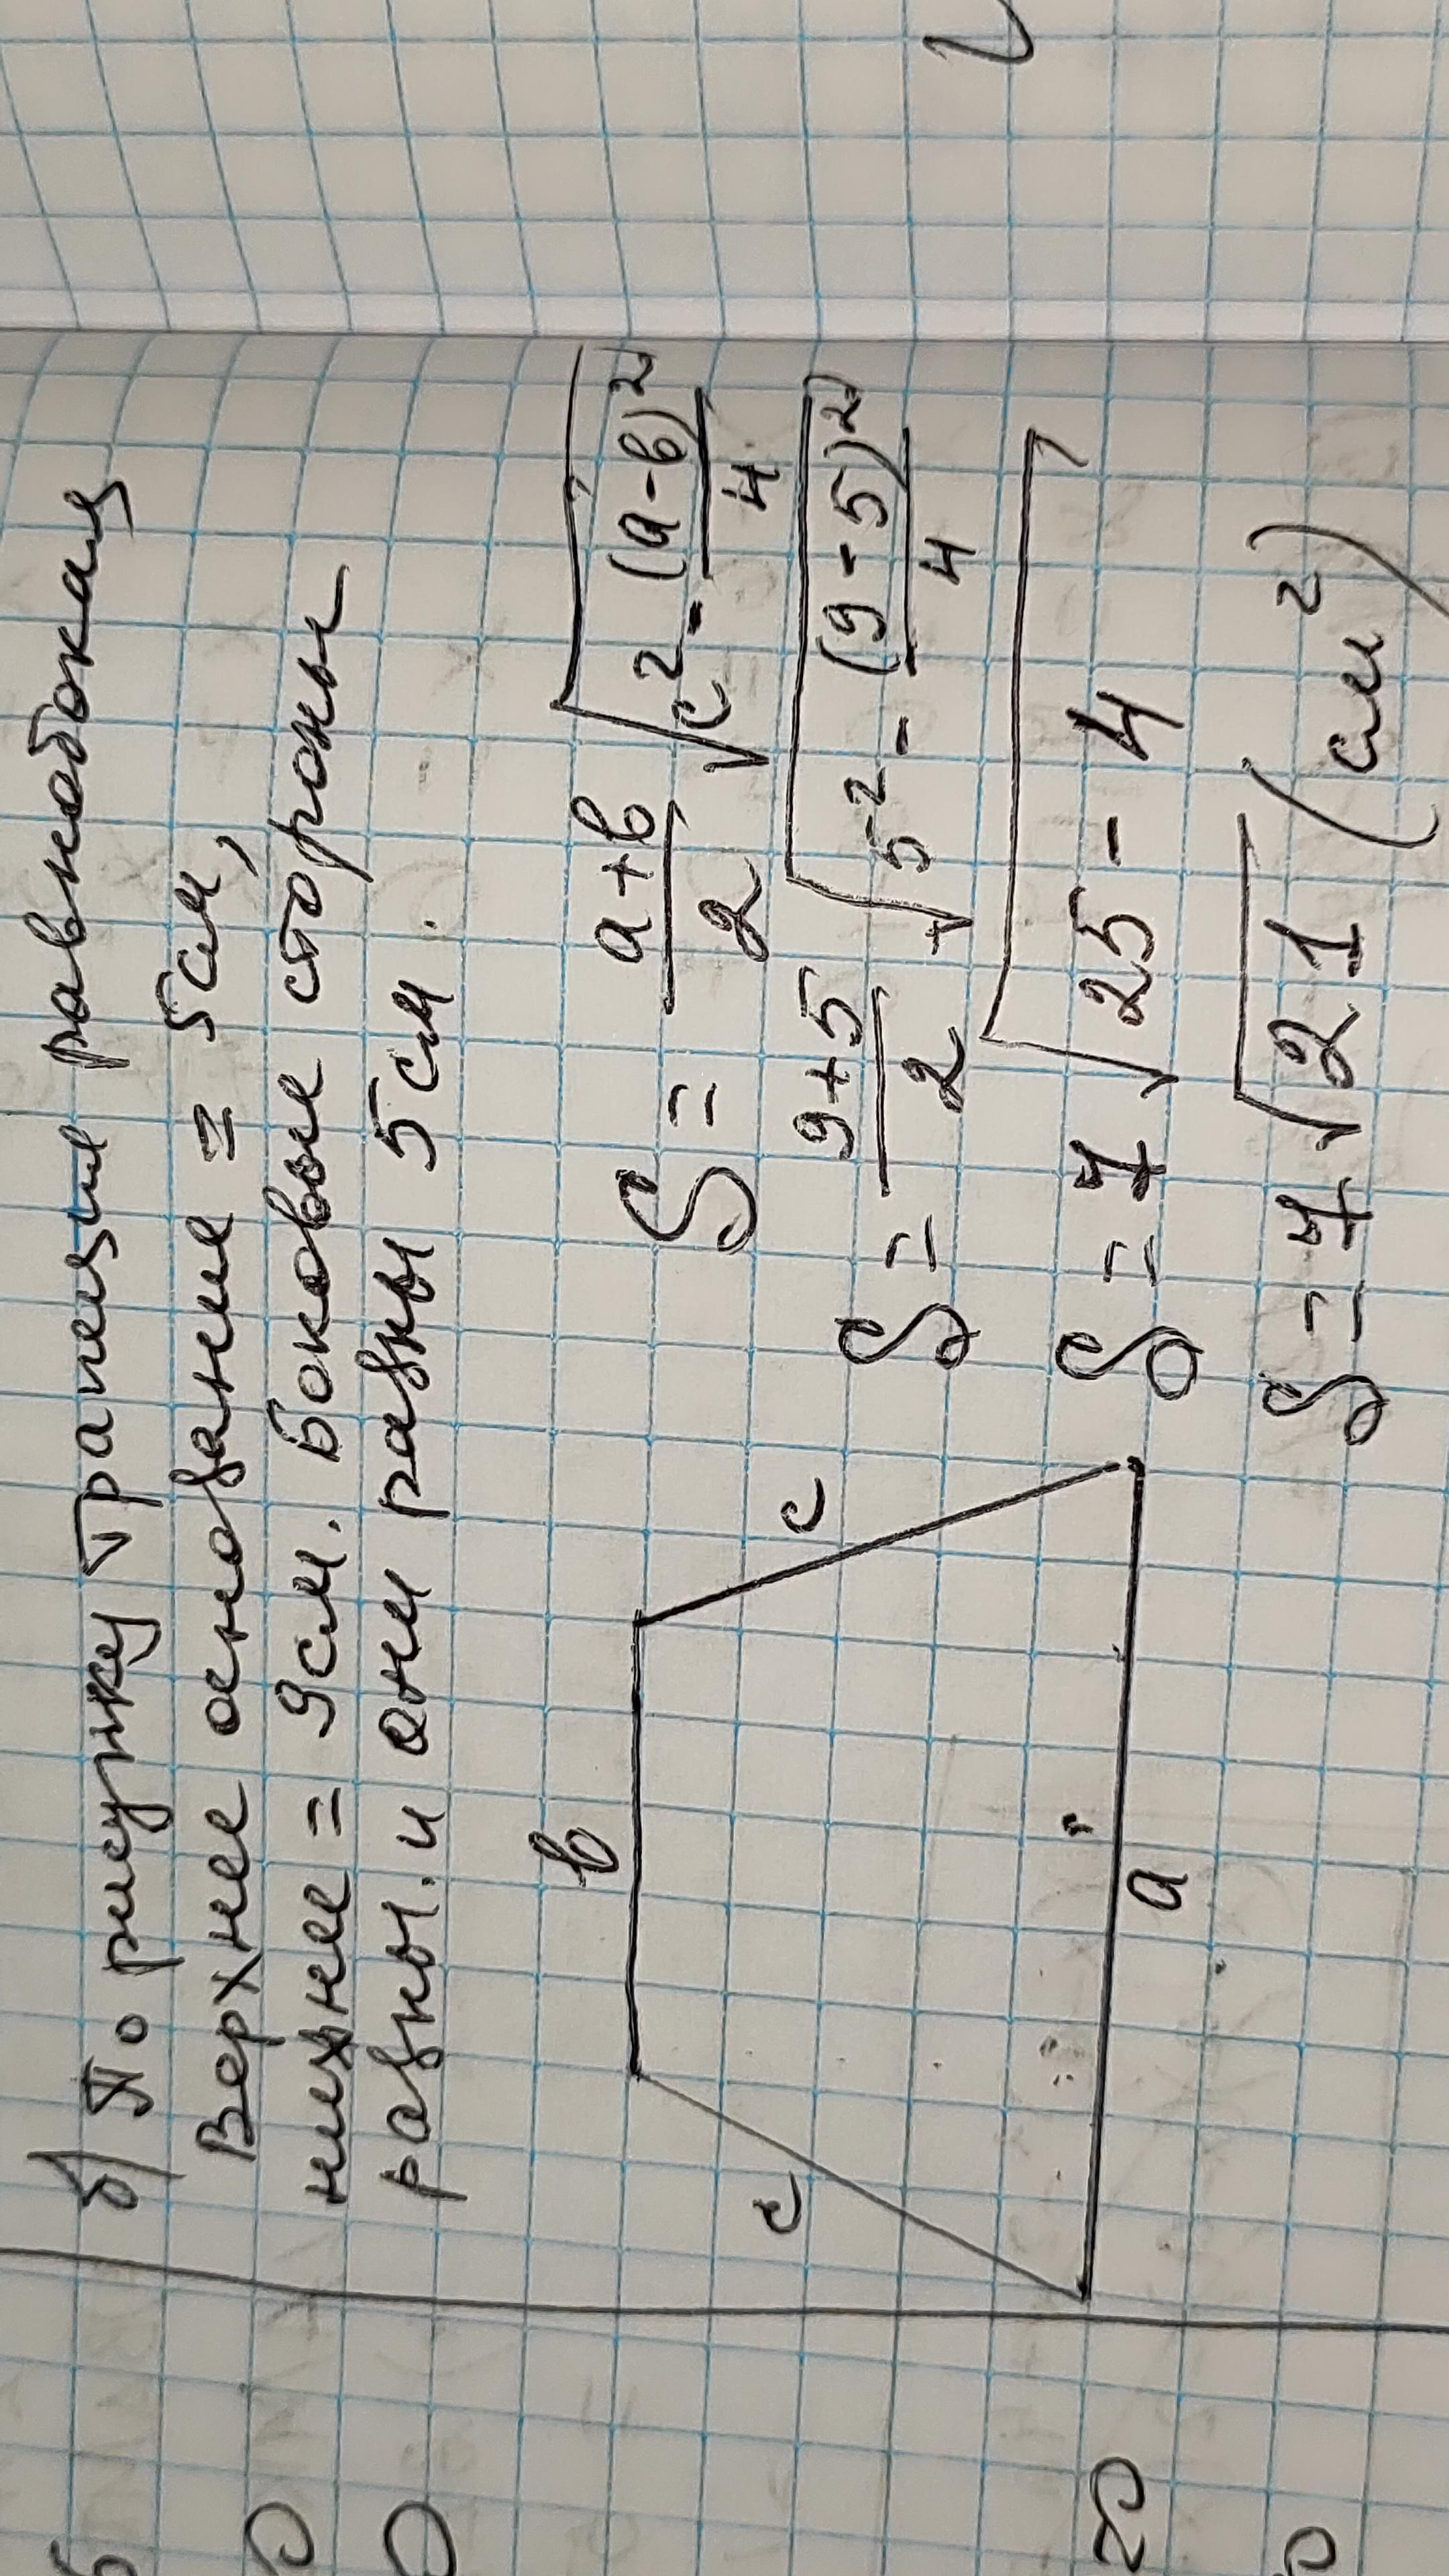 б) По рисунку трапеция равнобокая
Верхнее основание = 5см,
нижнее = 9см. Боковые стороны
равны. и они равны 5см.
b
c
c
a
S = \frac{a+b}{2} \sqrt{c^2 - \frac{(a-b)^2}{4}}
S = \frac{9+5}{2} \sqrt{5^2 - \frac{(9-5)^2}{4}}
S = 7 \sqrt{25-4}
S = 7 \sqrt{21} (см²)